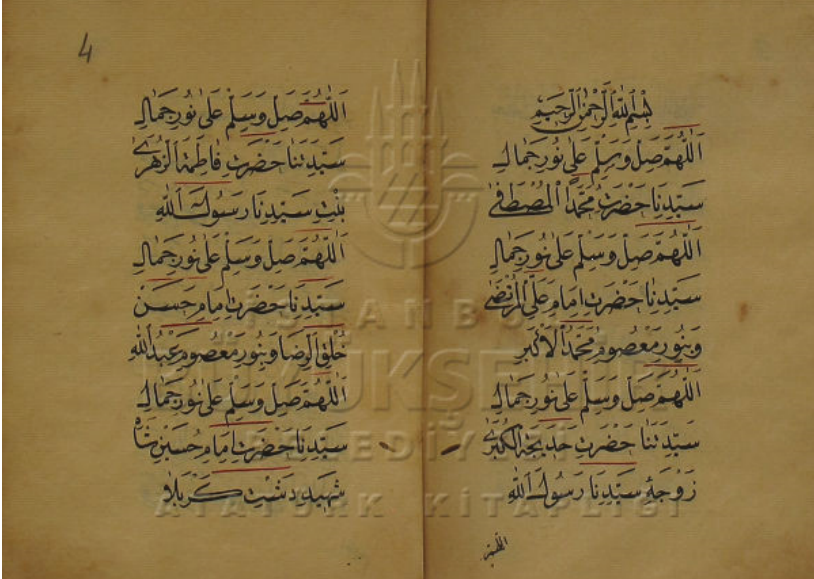 بِسْمِ اللّٰهِ الرَّحْمٰنِ الرَّحِيمِ
اَللّٰهُمَّ صَلِّ وَسَلِّمْ عَلٰى نُورِ جَمَالِ
سَيِّدِنَا حَضْرَتِ مُحَمَّدِ الْمُصْطَفٰى
اَللّٰهُمَّ صَلِّ وَسَلِّمْ عَلٰى نُورِ جَمَالِ
سَيِّدِنَا حَضْرَتِ اِمَامِ عَلِىِّ الْمُرْتَضٰى
وَبِنُورِ مَعْصُومِ مُحَمَّدُ الْاَكْبَرِ
اَللّٰهُمَّ صَلِّ وَسَلِّمْ عَلٰى نُورِ جَمَالِ
سَيِّدَتِنَا حَضْرَتِ خَدِيجَةِ الْكُبْرٰى
زَوْجَةِ سَيِّدِنَا رَسُولِ اللّٰهِ
اللهم
4
اَللّٰهُمَّ صَلِّ وَسَلِّمْ عَلٰى نُورِ جَمَالِ
سَيِّدَتِنَا حَضْرَتِ فَاطِمَةِ الزَّهْرٰى
بِنْتِ سَيِّدِنَا رَسُولِ اللّٰهِ
اَللّٰهُمَّ صَلِّ وَسَلِّمْ عَلٰى نُورِ جَمَالِ
سَيِّدِنَا حَضْرَتِ اِمَامِ حَسَنْ
خُلْقِ الرِّضَا وَبِنُورِ مَعْصُومِ عَبْدُ اللّٰهِ
اَللّٰهُمَّ صَلِّ وَسَلِّمْ عَلٰى نُورِ جَمَالِ
سَيِّدِنَا حَضْرَتِ اِمَامِ حُسَيْنِ شَاهْ
شَهِيدِ دَشْتِ كَرْبَلَا
İSTANBUL
BÜYÜKŞEHİR
BELEDİYESİ
ATATÜRK KİTAPLIĞI